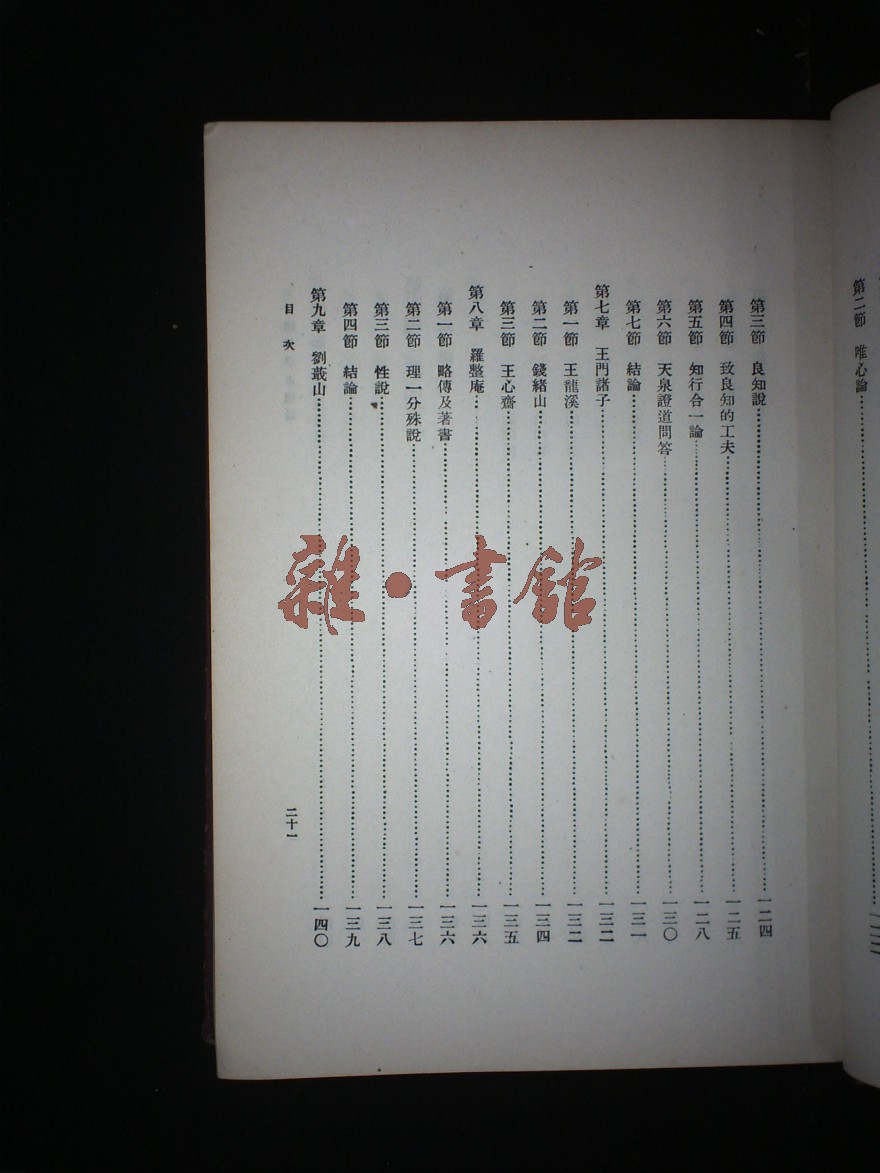 第二節　唯心論……一二三
第三節　良知說……一二四
第四節　致良知的工夫……一二五
第五節　知行合一論……一二八
第六節　天泉證道問答……一三〇
第七節　結論……一三一
第七章　王門諸子……一三二
第一節　王龍溪……一三二
第二節　錢緒山……一三四
第三節　王心齋……一三五
第八章　羅整庵……一三六
第一節　略傳及著書……一三六
第二節　理一分殊說……一三七
第三節　性說……一三八
第四節　結論……一三九
第九章　劉蕺山……一四〇
目次
二十一
雜·書館